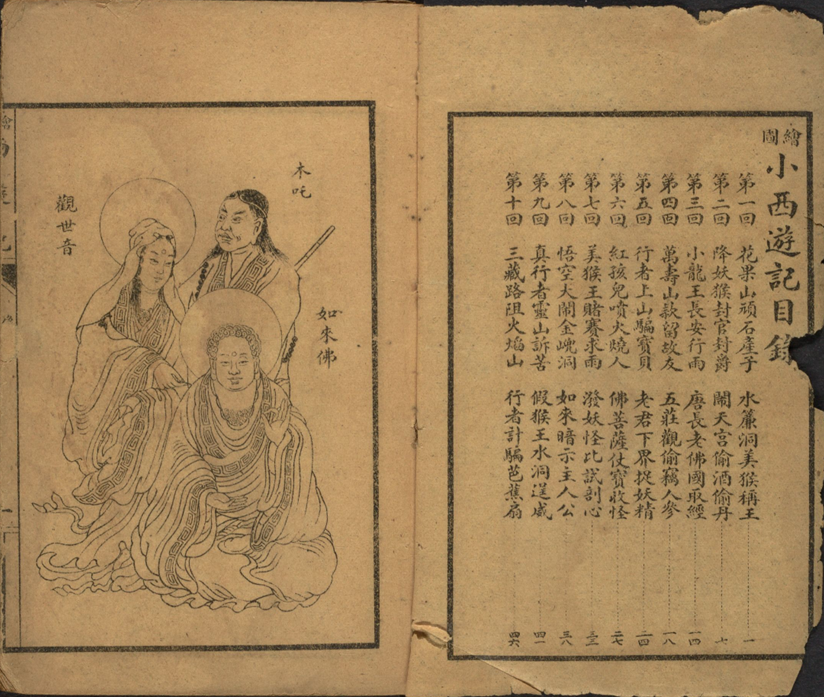 繪圖小西遊記目錄
第一回 花果山頑石產子 水簾洞美猴稱王 一
第二回 降妖猴封官封爵 鬧天宮偷酒偷丹 七
第三回 小龍王長安行雨 唐長老佛國取經 一四
第四回 萬壽山款留故友 五莊觀偷竊人參 一八
第五回 行者上山騙寶貝 老君下界捉妖精 二四
第六回 紅孩兒噴火燒人 佛菩薩仗寶收怪 二七
第七回 美猴王賭賽求雨 潑妖怪比試剖心 三三
第八回 悟空大鬧金𡶴洞 如來暗示主人公 三八
第九回 真行者靈山訴苦 假猴王水洞逞威 四一
第十回 三藏路阻火焰山 行者計騙芭蕉扇 四六
木吒
如來佛
觀世音